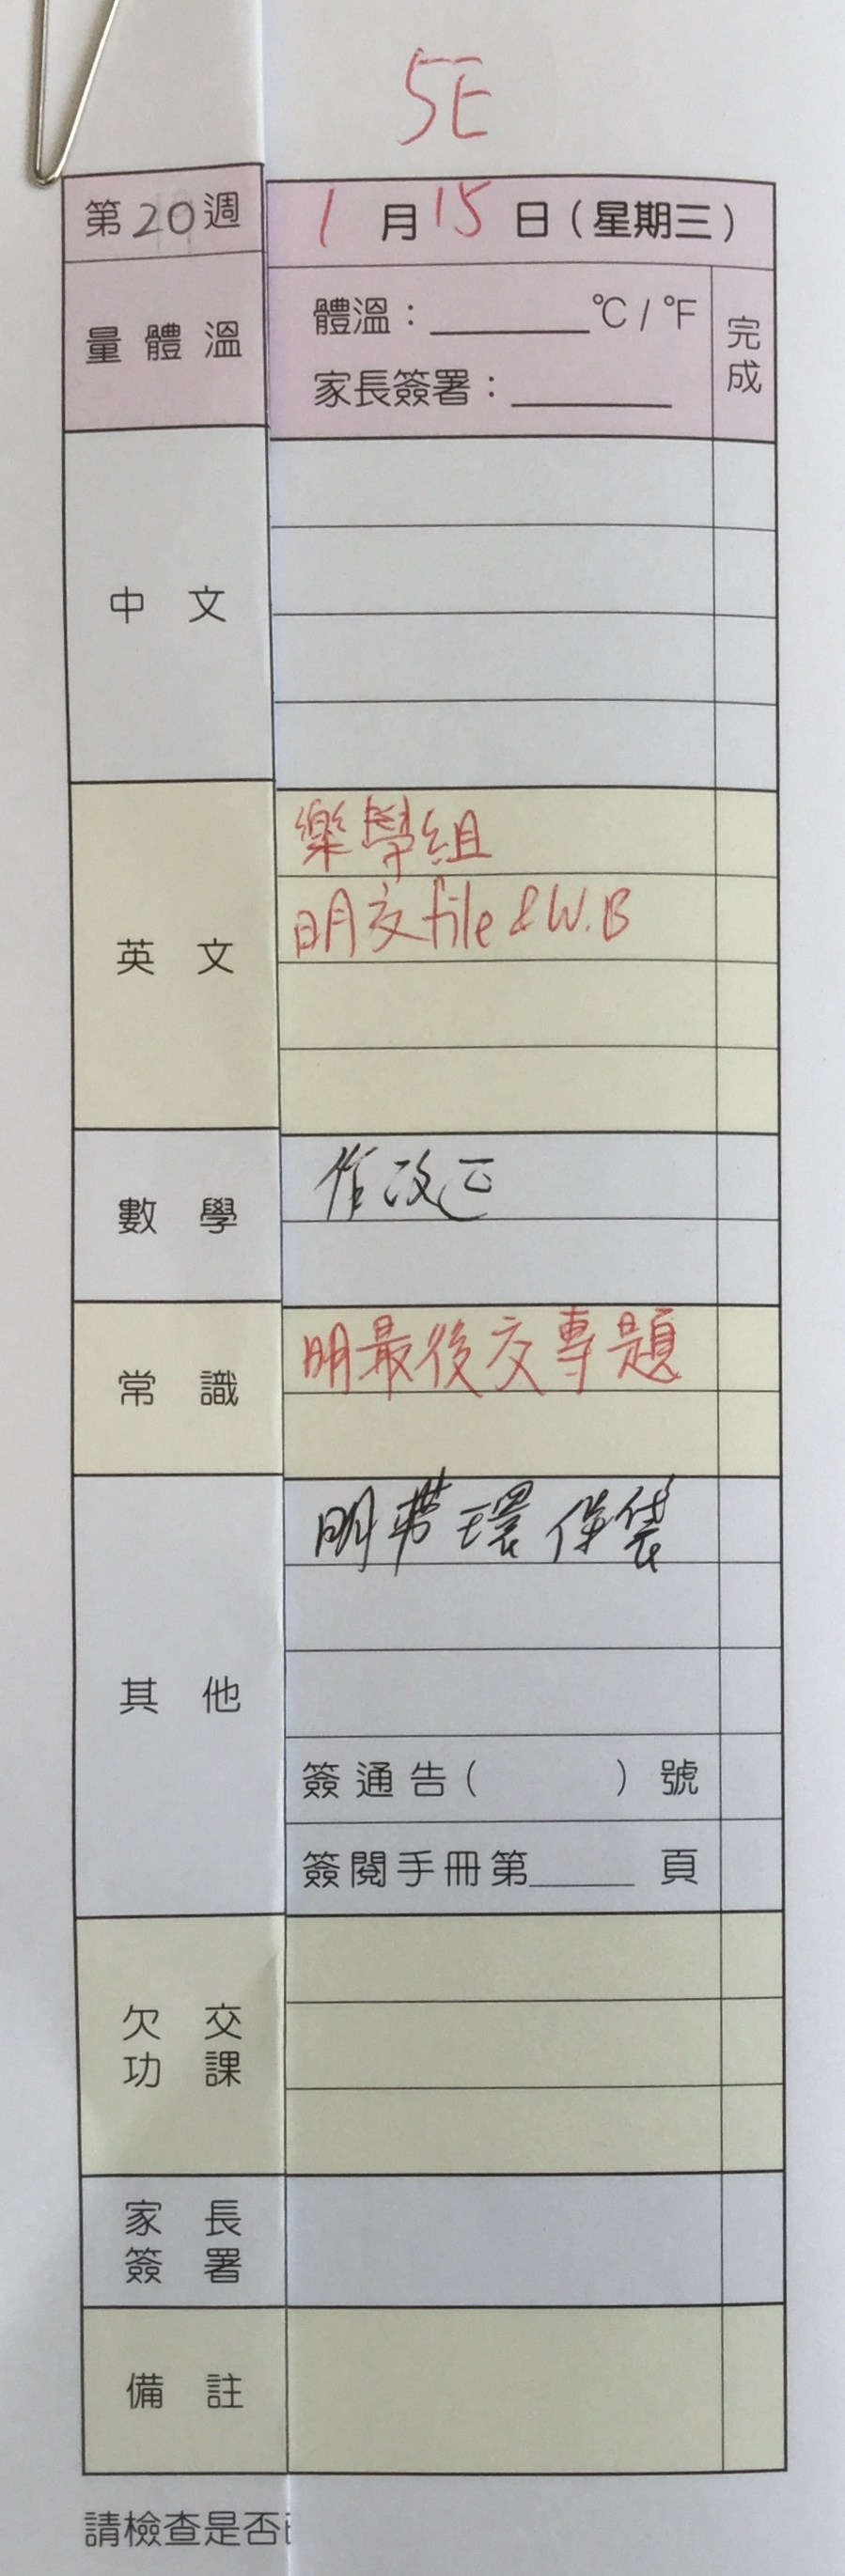 5E
第20週 1月15日(星期三)
量體溫
體溫：______°C / °F
家長簽署：______
完成
中文
英文
樂學組
明交file & W.B
數學
作改正
常識
明最後交專題
其他
明帶環保袋
簽通告( )號
簽閱手冊第____頁
欠交功課
家長簽署
備註
請檢查是否